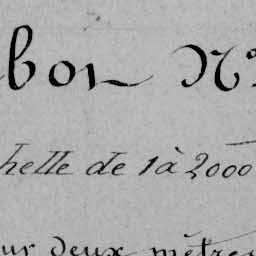 bon N°
helle de 1 à 2000
ur deux mètres